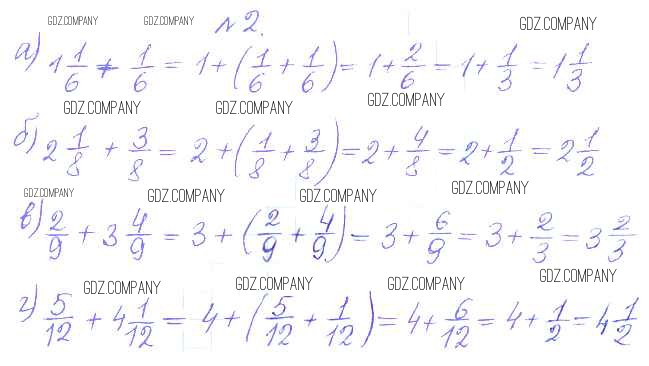 GDZ.COMPANY GDZ.COMPANY №2. GDZ.COMPANY
а) 1 1/6 + 1/6 = 1 + (1/6 + 1/6) = 1 + 2/6 = 1 + 1/3 = 1 1/3
GDZ.COMPANY GDZ.COMPANY GDZ.COMPANY
б) 2 1/8 + 3/8 = 2 + (1/8 + 3/8) = 2 + 4/8 = 2 + 1/2 = 2 1/2
GDZ.COMPANY GDZ.COMPANY GDZ.COMPANY GDZ.COMPANY
в) 2/9 + 3 4/9 = 3 + (2/9 + 4/9) = 3 + 6/9 = 3 + 2/3 = 3 2/3
GDZ.COMPANY GDZ.COMPANY GDZ.COMPANY GDZ.COMPANY
г) 5/12 + 4 1/12 = 4 + (5/12 + 1/12) = 4 + 6/12 = 4 + 1/2 = 4 1/2